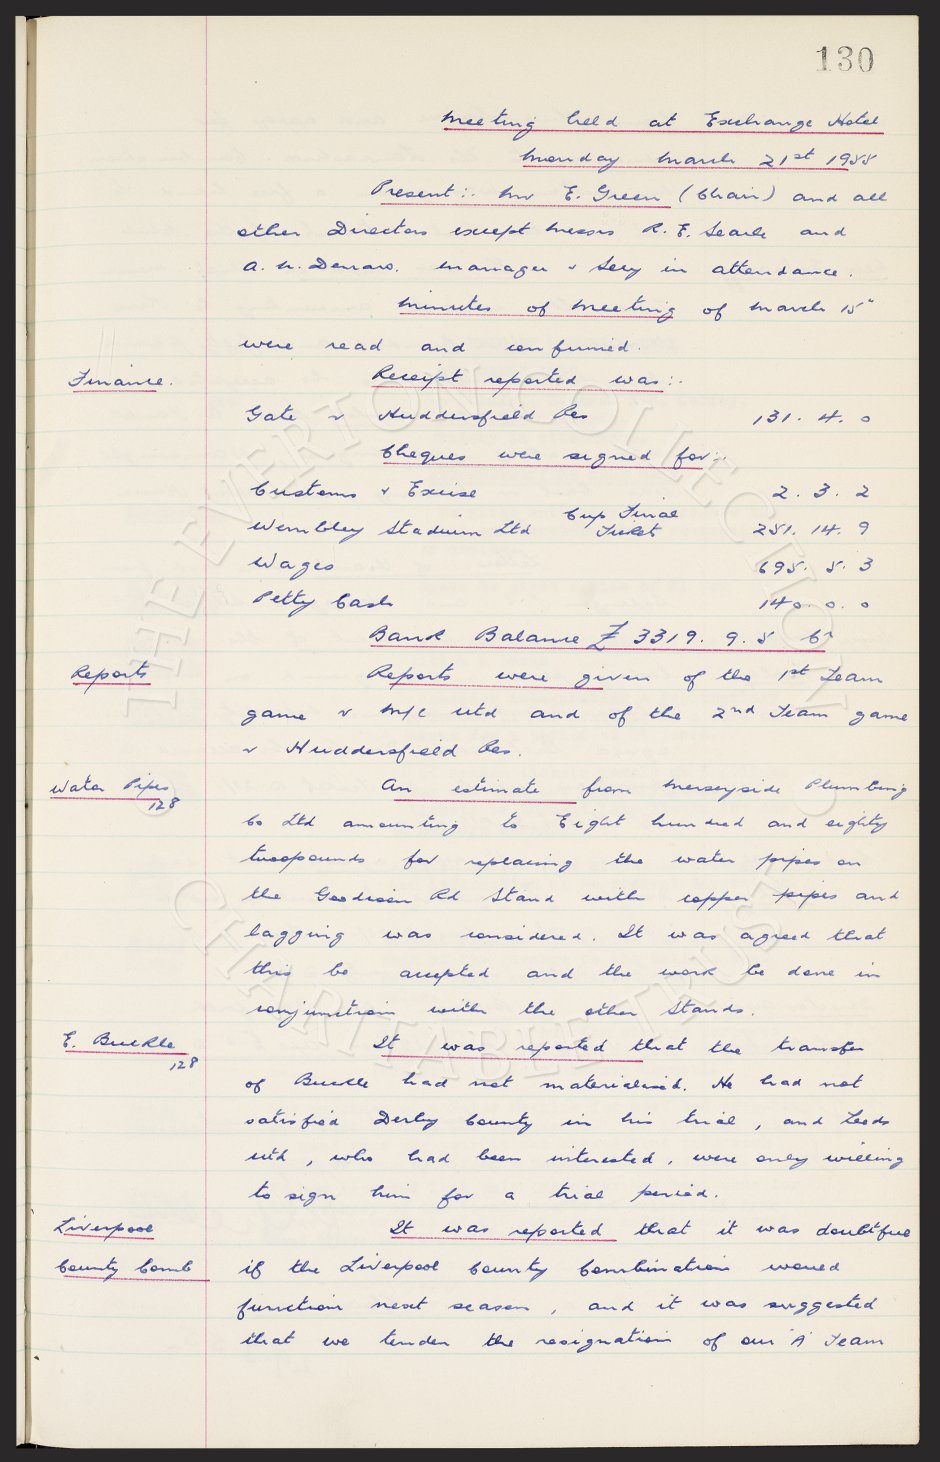 130
Meeting held at Exchange Hotel
Monday March 21st 1955
Present:- Mr E. Green (Chair) and all
other Directors except Messrs R. E. Searle and
A. W. Denaro. Manager & Secy in attendance.
Minutes of meeting of March 15"
were read and confirmed.
Finance.
Receipt reported was:-
Gate v Huddersfield Res 131. 4. 0
Cheques were signed for:-
Customs & Excise 2. 3. 2
Wembley Stadium Ltd Cup Final Tickets 251. 14. 9
Wages 695. 5. 3
Petty Cash 140. 0. 0
Bank Balance £ 3319. 9. 5 Cr
Reports
Reports were given of the 1st Team
game v M/C Utd and of the 2nd Team game
v Huddersfield Res.
Water Pipes
128
An estimate from Merseyside Plumbing
Co Ltd amounting to Eight hundred and eighty
twopounds for replacing the water pipes on
the Goodison Rd Stand with copper pipes and
lagging was considered. It was agreed that
this be accepted and the work be done in
conjunction with the other Stands.
E. Buckle
128
It was reported that the transfer
of Buckle had not materialised. He had not
satisfied Derby County in his trial, and Leeds
Utd, who had been interested, were only willing
to sign him for a trial period.
Liverpool
County Comb
It was reported that it was doubtful
if the Liverpool County Combination would
function next season, and it was suggested
that we tender the resignation of our "A" Team
THE EVERTON COLLECTION
CHARITABLE TRUST